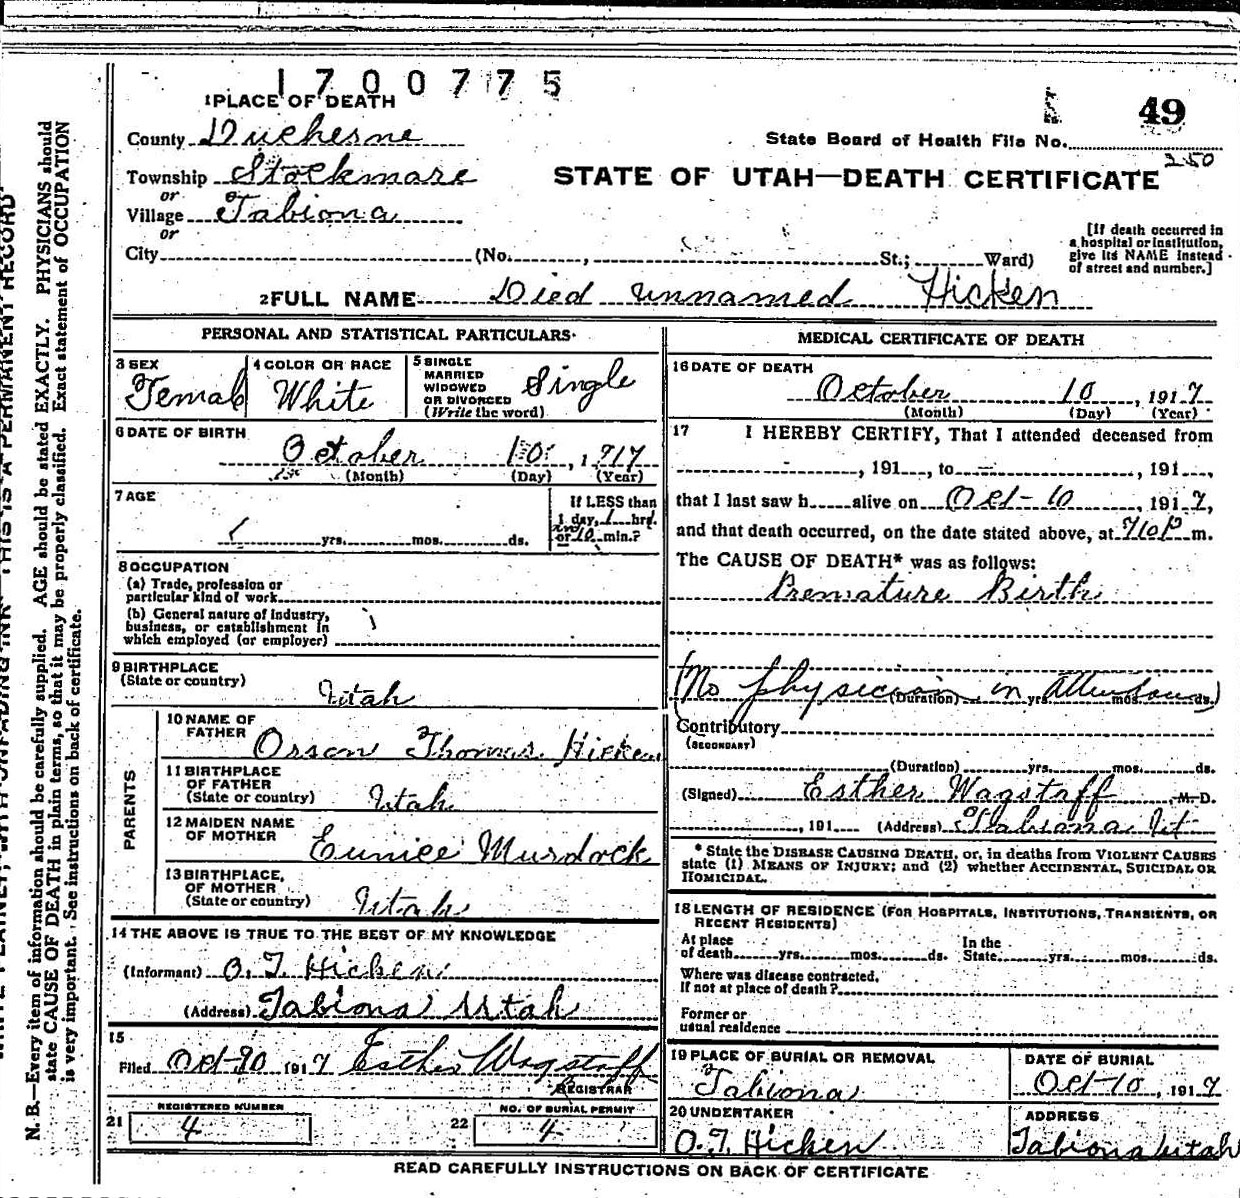 1700775
1 PLACE OF DEATH
49
County Duchesne
State Board of Health File No.
250
Township Stockmore
STATE OF UTAH—DEATH CERTIFICATE
or
Village Tabiona
or
City (No. , St.; Ward)
[If death occurred in
a hospital or institution,
give its NAME instead
of street and number.]
2 FULL NAME Died unnamed Hicken
PERSONAL AND STATISTICAL PARTICULARS
3 SEX
Femal
4 COLOR OR RACE
White
5 SINGLE
MARRIED
WIDOWED
OR DIVORCED
(Write the word)
Single
6 DATE OF BIRTH
October 10, 1917
(Month) (Day) (Year)
7 AGE
yrs. mos. ds.
If LESS than
1 day, 1 hrs.
or 10 min.?
8 OCCUPATION
(a) Trade, profession or
particular kind of work
(b) General nature of industry,
business, or establishment in
which employed (or employer)
9 BIRTHPLACE
(State or country)
Utah
PARENTS
10 NAME OF
FATHER
Orson Thomas Hicken
11 BIRTHPLACE
OF FATHER
(State or country)
Utah
12 MAIDEN NAME
OF MOTHER
Eunice Murdock
13 BIRTHPLACE,
OF MOTHER
(State or country)
Utah
14 THE ABOVE IS TRUE TO THE BEST OF MY KNOWLEDGE
(Informant) O. T. Hicken
(Address) Tabiona Utah
15
Filed Oct-30 1917 Esther Wagstaff
REGISTRAR
21
REGISTERED NUMBER
4
22
NO. OF BURIAL PERMIT
4
MEDICAL CERTIFICATE OF DEATH
16 DATE OF DEATH
October 10, 1917
(Month) (Day) (Year)
17 I HEREBY CERTIFY, That I attended deceased from
, 191 , to , 191 ,
that I last saw h alive on Oct-10, 1917,
and that death occurred, on the date stated above, at 710 P m.
The CAUSE OF DEATH* was as follows:
Premature Birth
(No physician in attendance)
(Duration) yrs. mos. ds.
Contributory
(SECONDARY)
(Duration) yrs. mos. ds.
(Signed) Esther Wagstaff, M. D.
, 191 (Address) Tabiona Ut
* State the DISEASE CAUSING DEATH, or, in deaths from VIOLENT CAUSES
state (1) MEANS OF INJURY; and (2) whether ACCIDENTAL, SUICIDAL OR
HOMICIDAL.
18 LENGTH OF RESIDENCE (FOR HOSPITALS, INSTITUTIONS, TRANSIENTS, OR
RECENT RESIDENTS)
At place
of death yrs. mos. ds.
In the
State yrs. mos. ds.
Where was disease contracted,
If not at place of death?
Former or
usual residence
19 PLACE OF BURIAL OR REMOVAL
Tabiona
DATE OF BURIAL
Oct-10, 1917
20 UNDERTAKER
O. T. Hicken
ADDRESS
Tabiona Utah
READ CAREFULLY INSTRUCTIONS ON BACK OF CERTIFICATE
N. B.—Every item of information should be carefully supplied. AGE should be stated EXACTLY. PHYSICIANS should
state CAUSE OF DEATH in plain terms, so that it may be properly classified. Exact statement of OCCUPATION
is very important. See instructions on back of certificate.
THIS IS A PERMANENT RECORD